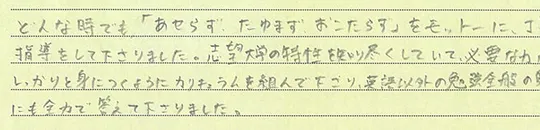 どんな時でも「あせらず たゆまず おこたらず」をモットーに、丁
指導をして下さりました。志望大学の特性を知り尽くしていて、必要な力
しっかりと身につくようにカリキュラムを組んで下さり、英語以外の勉強全般の
にも全力で答えて下さりました。